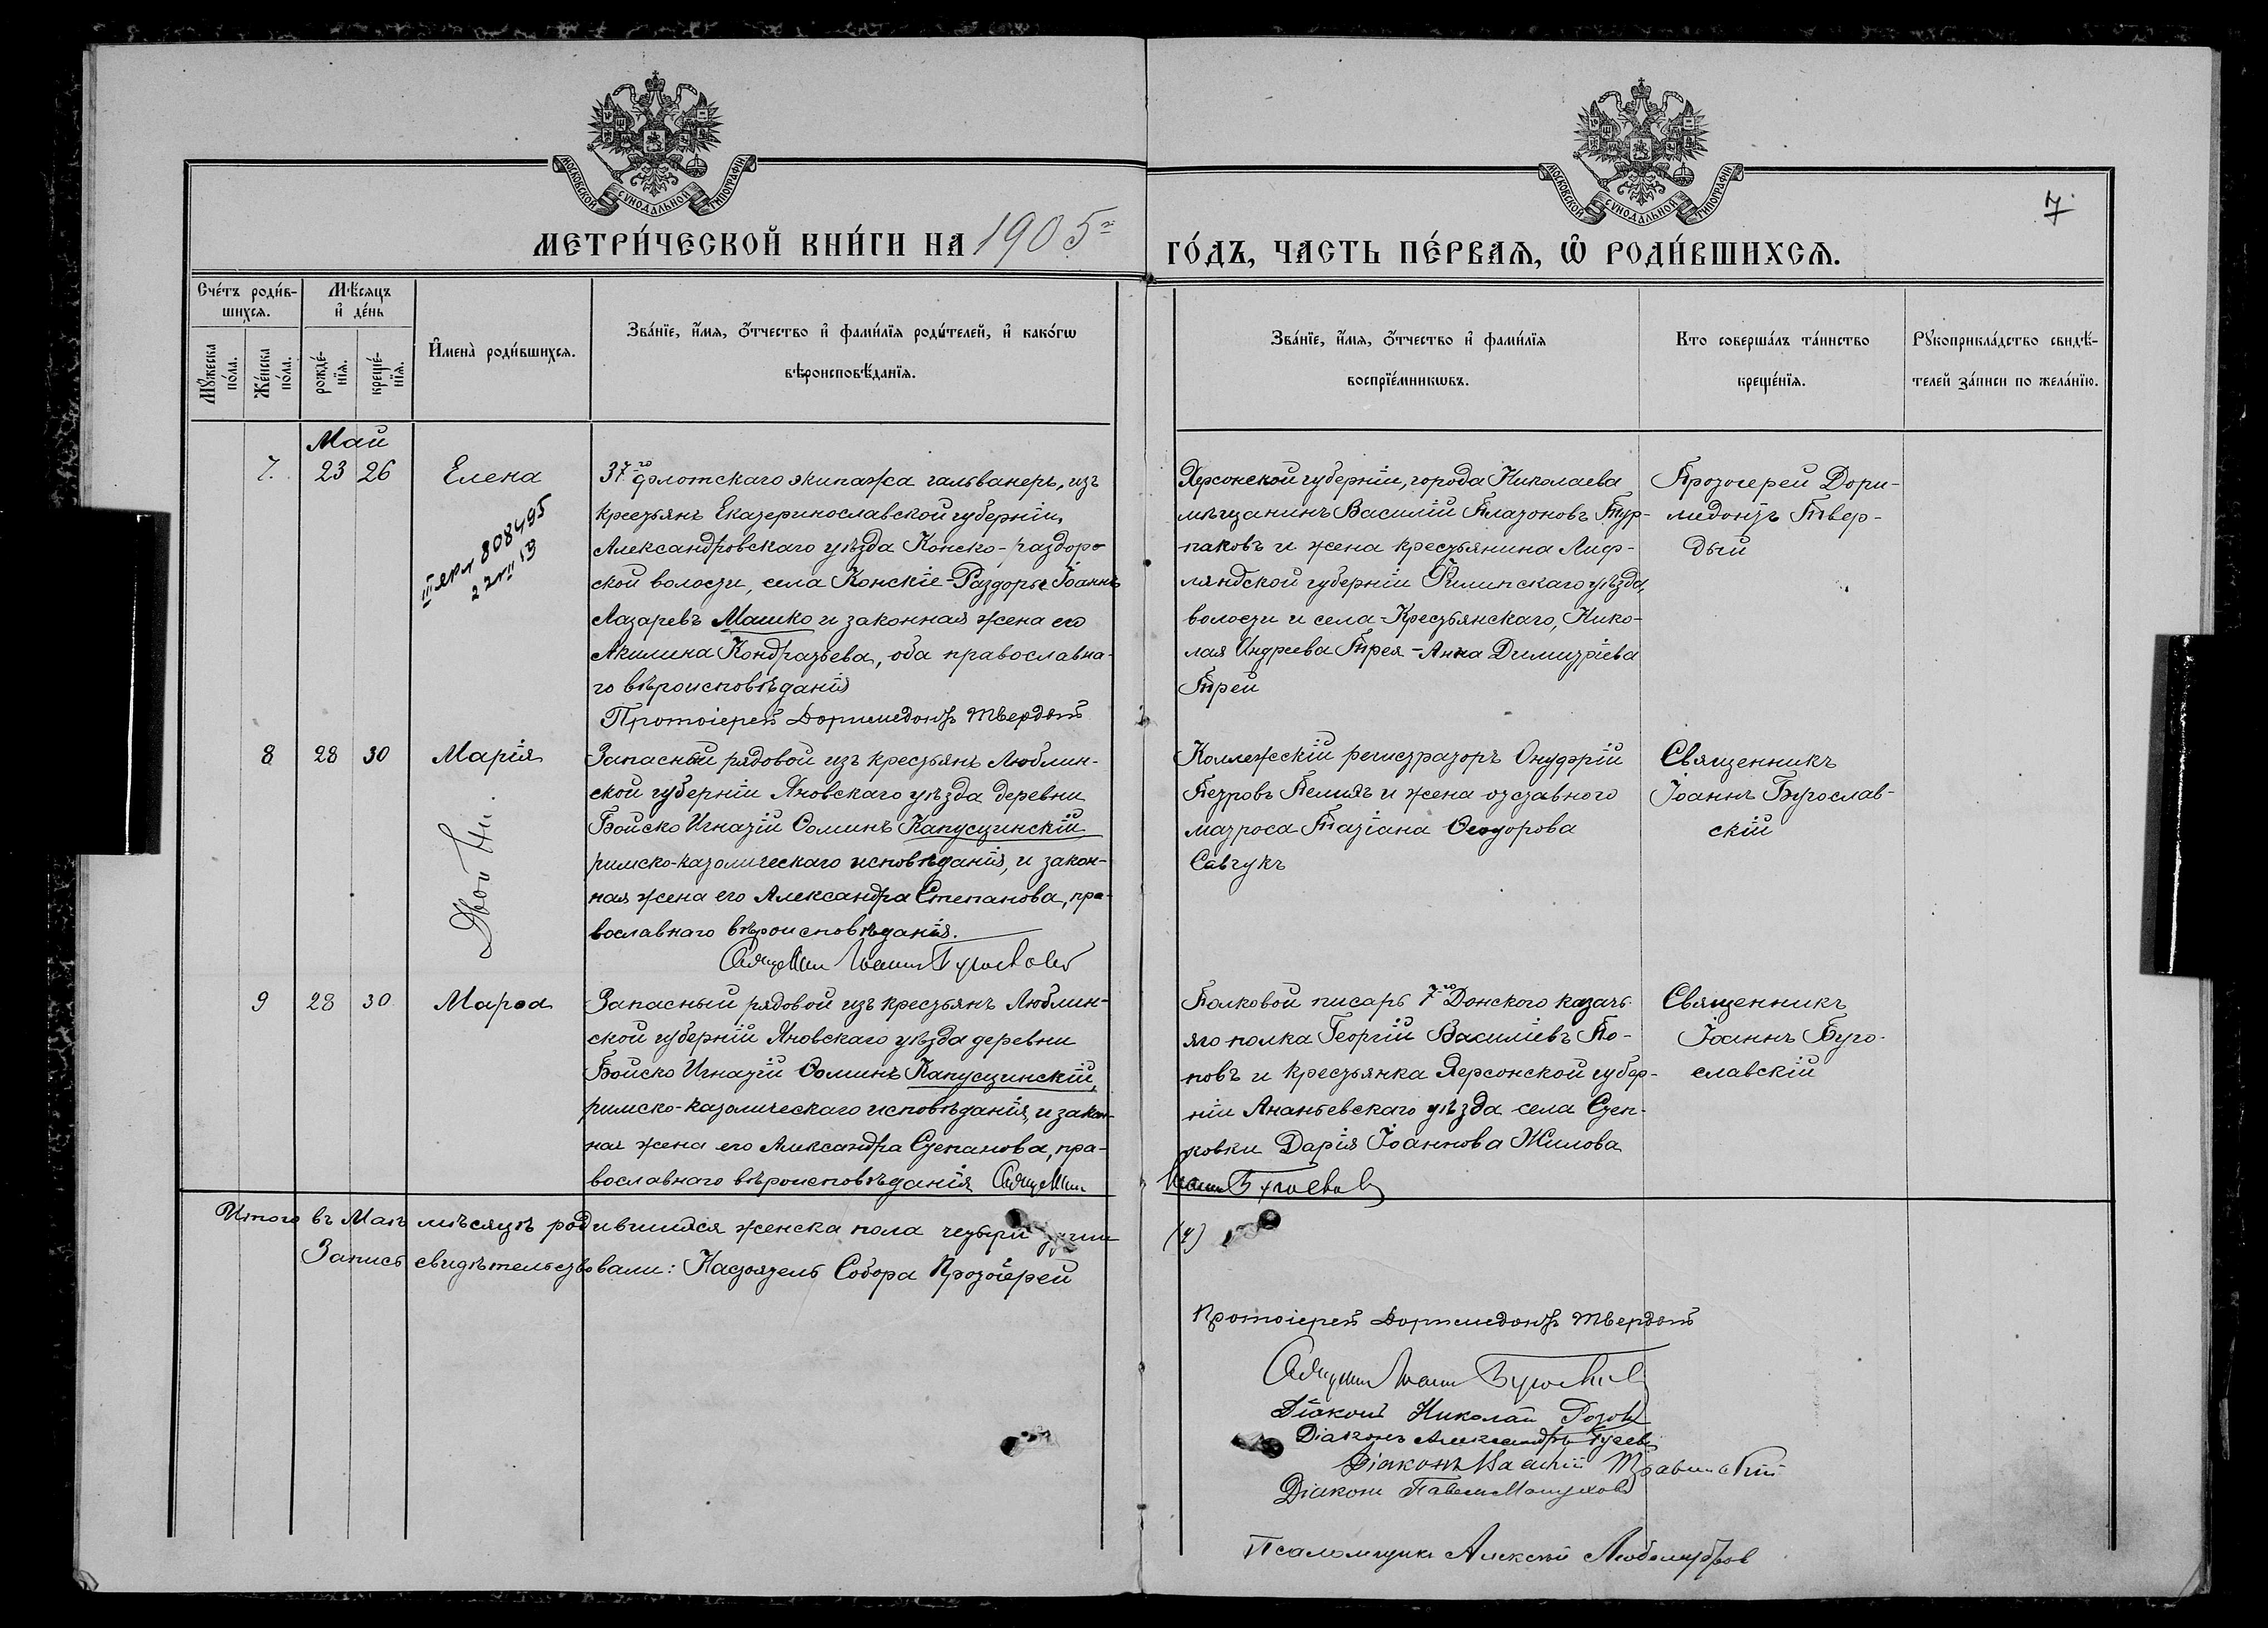 МОСКОВСКОЙ СѴНОДАЛЬНОЙ ТИПОГРАФІИ
МОСКОВСКОЙ СѴНОДАЛЬНОЙ ТИПОГРАФІИ
7
МЕТРИ́ЧЕСКОЙ КНИ́ГИ НА 1905 г. ГО́ДЪ, ЧАСТЬ ПЕ́РВАѦ, Ѽ РОДИ́ВШИХСѦ.
Сче́тъ роди́в-
шихсѧ.
Мѣ́сѧцъ
и҆ де́нь
Мꙋ́жеска по́ла.
Же́нска по́ла.
рожде́-нїѧ.
креще́-нїѧ.
И҆мена̀ роди́вшихсѧ.
Зва́нїе, и҆́мѧ, ѻ҆́тчество и҆ фами́лїѧ роди́телей, и҆ како́гѡ
вѣроисповѣ́данїѧ.
Зва́нїе, и҆́мѧ, ѻ҆́тчество и҆ фами́лїѧ
воспрїе́мникѡвъ.
Кто соверша́лъ та́инство
креще́нїѧ.
Рꙋкоприкла́дство свидѣ́-
телей за́писи по жела́нїю.
Май
7. 23 26 Елена
37го флотскаго экипажа гальванеръ, изъ
крестьянъ Екатеринославской губерніи,
Александровскаго уѣзда Конско-раздор-
ской волости, села Конскіе-Раздоры Іоаннъ
Лазаревъ Машко и законная жена его
Акилина Кондратьева, оба православна-
го вѣроисповѣданія
Протоіерей Доримедонтъ Твердый
808495
Херсонской губерніи, города Николаева
мѣщанинъ Василій Платоновъ Тур-
паковъ и жена крестьянина Лиф-
ляндской губерніи Рилинскаго уѣзда,
волости и села-Крестьянскаго, Нико-
лая Андреева Трея - Анна Димитріева
Трей
Протоіерей Дори-
медонтъ Твер-
дый
8 28 30 Марія
Двой ни.
Запасный рядовой изъ крестьянъ Люблин-
ской губерніи Яновскаго уѣзда деревни
Бойско Игнатій Ѳоминъ Капустинскій
римско-католическаго исповѣданія, и закон-
ная жена его Александра Степанова, пра-
вославнаго вѣроисповѣданія.
Коллежскій регистраторъ Онуфрій
Петровъ Пелихъ и жена отставного
матроса Татіана Ѳеодорова
Савчукъ
Священникъ
Іоаннъ Бугослав-
скій
9 28 30 Марѳа
Запасный рядовой изъ крестьянъ Люблин-
ской губерніи Яновскаго уѣзда деревни
Бойско Игнатій Ѳоминъ Капустинскій,
римско-католическаго исповѣданія, и закон-
ная жена его Александра Степанова, пра-
вославнаго вѣроисповѣданія
Полковой писарь 7го Донского казачь-
яго полка Георгій Василіевъ По-
повъ и крестьянка Херсонской губер-
ніи Ананьевскаго уѣзда села Степ-
ковки Дарія Іоаннова Жилова
Священникъ
Іоаннъ Буго-
славскій
Итого въ Маѣ мѣсяцѣ родившихся женска пола четыри (4)
Запись свидѣтельствовали: Настоятель Собора Протоіерей
Протоіерей Доримедонтъ Твердый
Діаконъ Николай Розовъ
Діаконъ Александръ Гусевъ
Діаконъ Василій Травинскій
Діаконъ Павелъ
Псаломщикъ Алексѣй Любомудровъ